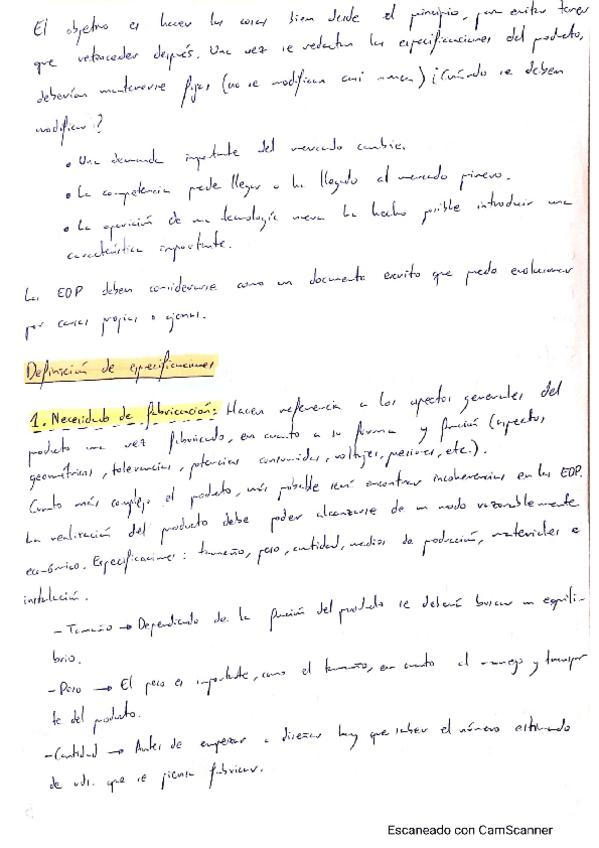 El objetivo es hacer las cosas bien desde el principio, para evitar tener
que retroceder después. Una vez se redactan las especificaciones del producto,
deberían mantenerse fijas (no se modifican casi nunca) ¿Cuándo se deben
modificar?
• Una demanda importante del mercado cambie.
• La competencia puede llegar o ha llegado al mercado primero.
• La aparición de una tecnología nueva ha hecho posible introducir una
característica importante.
Las EDP deben considerarse como un documento escrito que puede evolucionar
por causas propias o ajenas.
Definición de especificaciones
1. Necesidad de fabricación: Hacen referencia a los aspectos generales del
producto una vez fabricado, en cuanto a su forma y función (aspectos
geométricos, tolerancias, potencias consumidas, voltajes, presiones, etc.).
Cuanto más complejo el producto, más probable será encontrar incoherencias en las EDP.
La realización del producto debe poder alcanzarse de un modo razonablemente
económico. Especificaciones: tamaño, peso, cantidad, medios de producción, materiales e
instalación.
- Tamaño → Dependiendo de la función del producto se deberá buscar un equili-
brio.
- Peso → El peso es importante, como el tamaño, en cuanto al manejo y transpor
te del producto.
- Cantidad → Antes de empezar a diseñar hay que saber el número estimado
de uds. que se piensa fabricar.
Escaneado con CamScanner